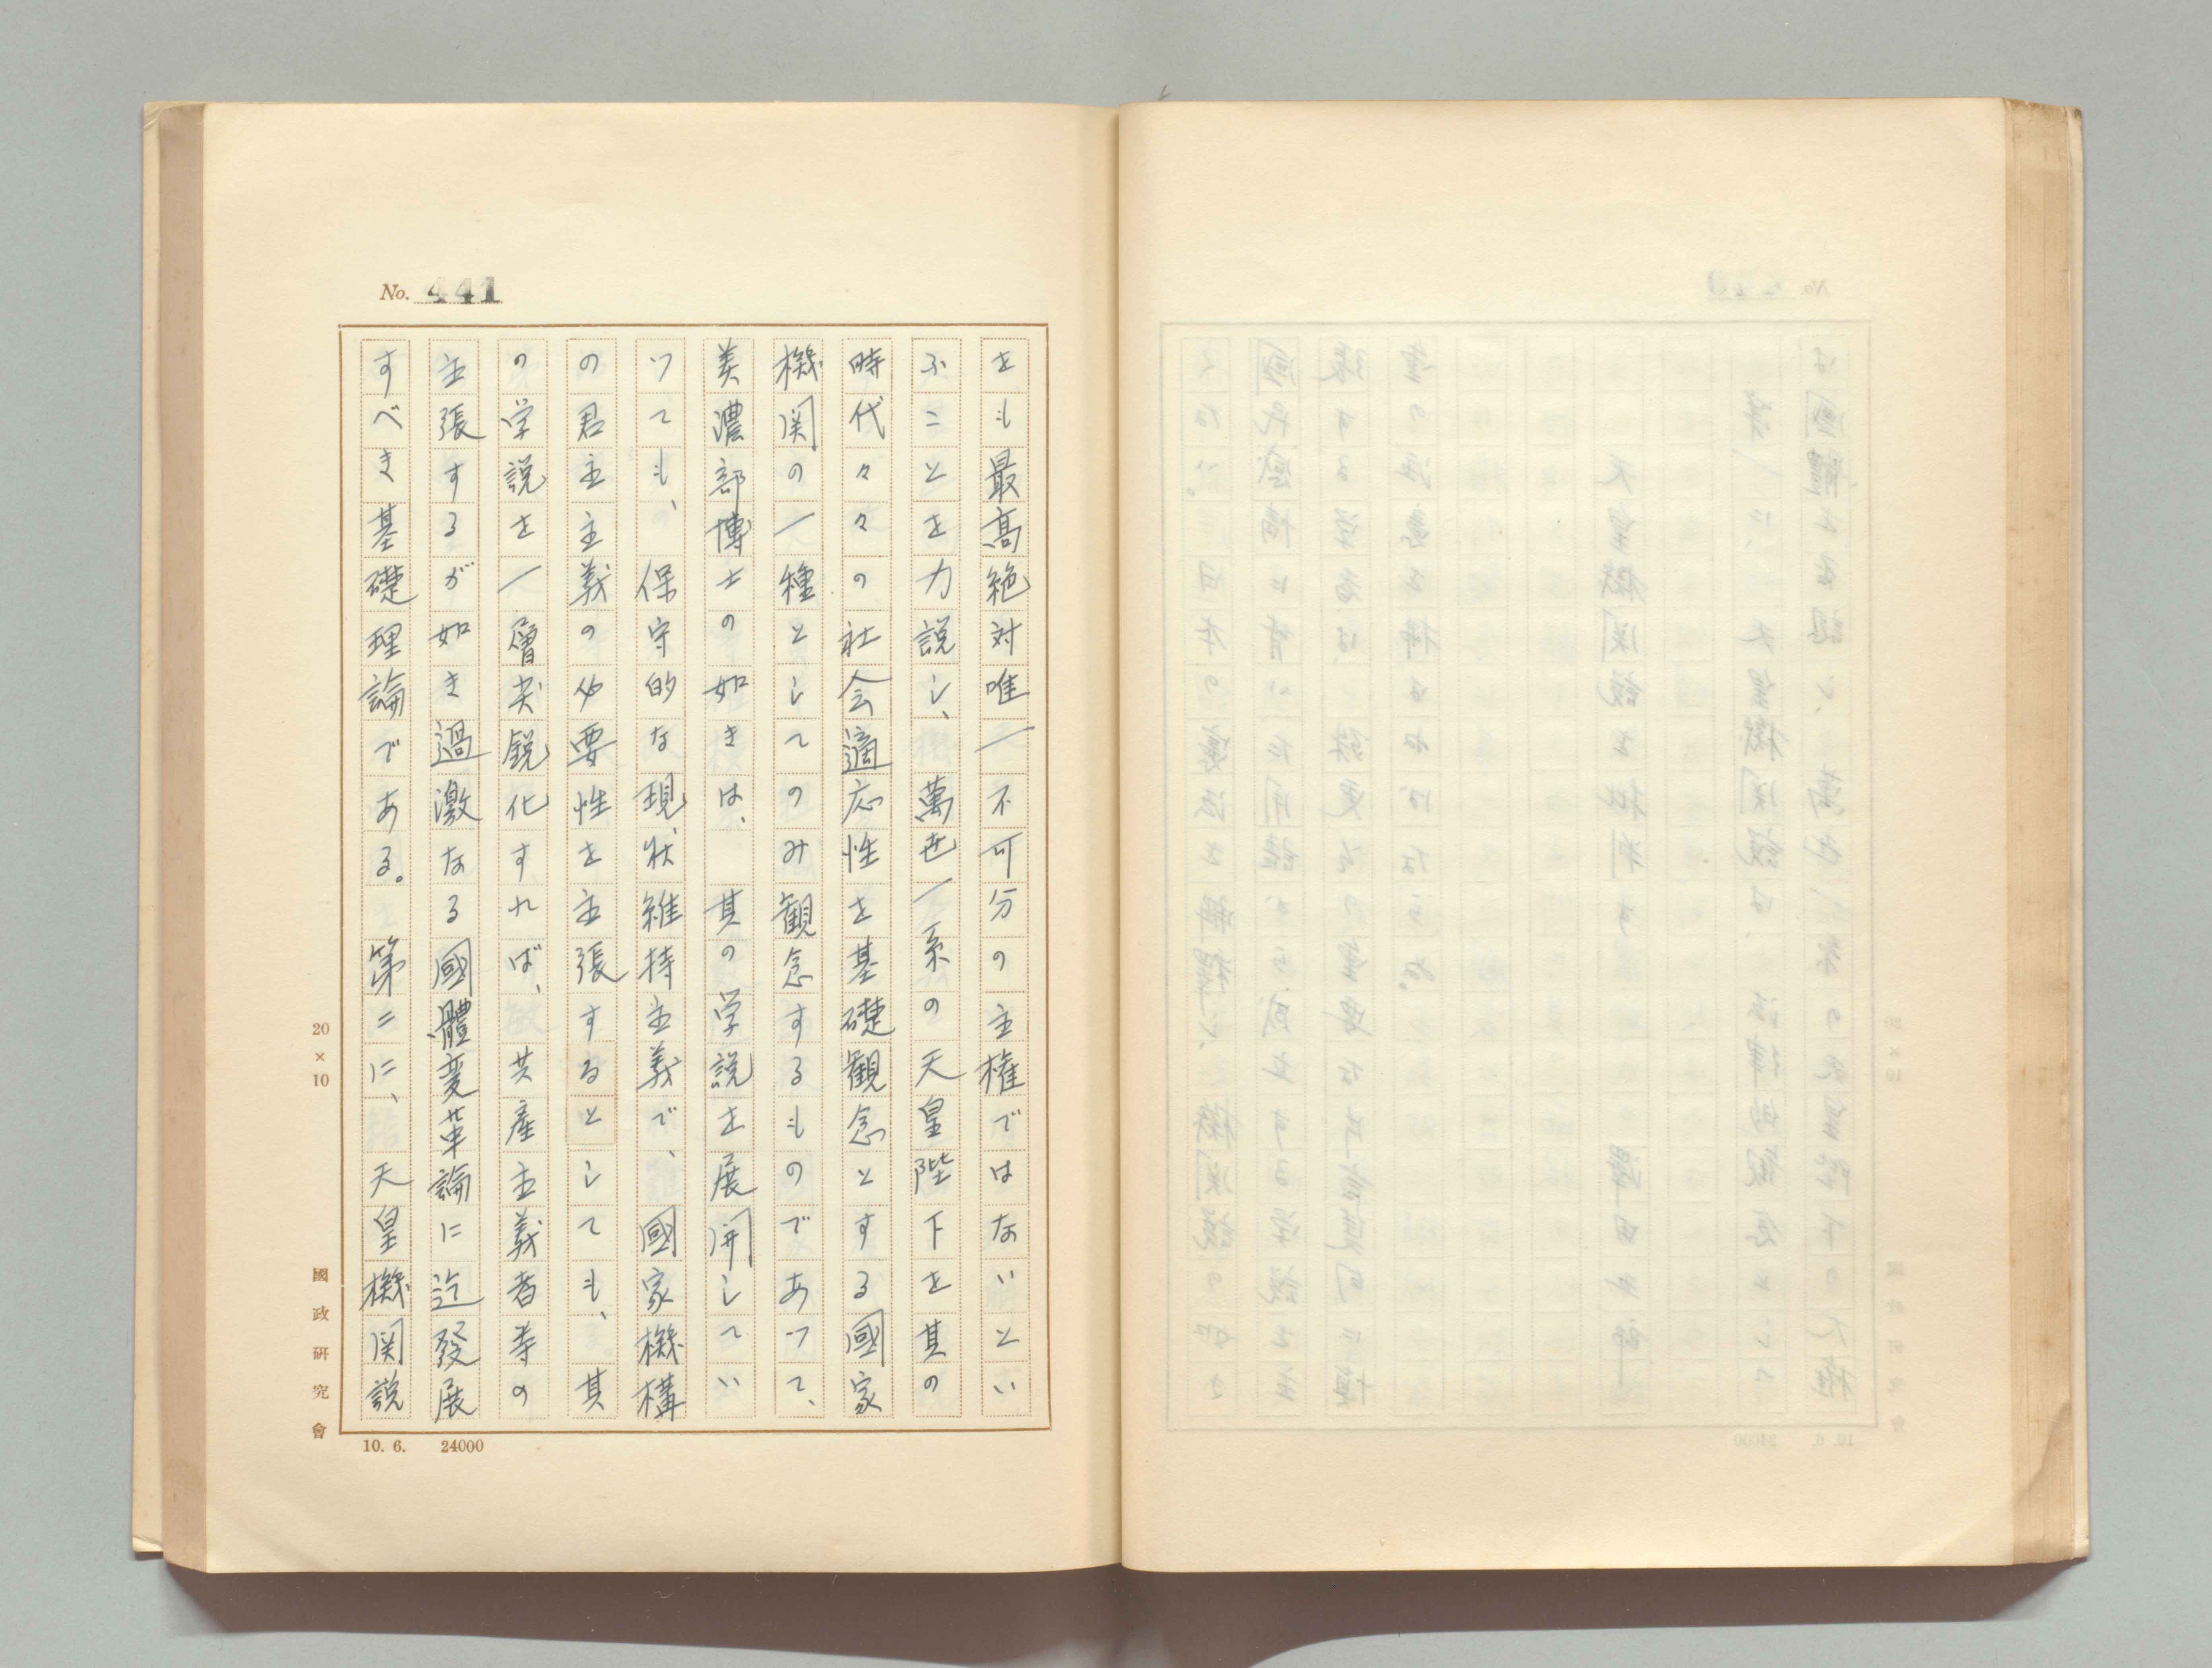 No. 441
をも最高絶対唯一不可分の主権ではないとい
ふことを力説し、萬世一系の天皇陛下を其の
時代々々の社会適応性を基礎観念とする國家
機関の一種としてのみ観念するものであつて、
美濃部博士の如きは、其の学説を展開してい
つても、保守的な現状維持主義で、國家機構
の君主主義の必要性を主張するとしても、其
の学説を一層尖鋭化すれば、共産主義者等の
主張するが如き過激なる國體変革論に迄發展
すべき基礎理論である。第二に、天皇機関説
20×10
國政研究會
10. 6. 24000